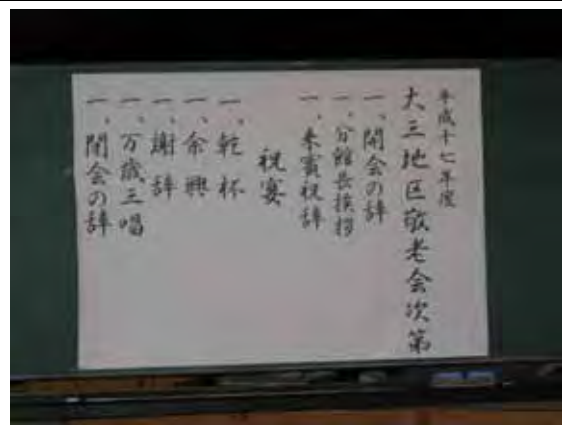 平成十七年度
大三地区敬老会次第
一、開会の辞
一、分館長挨拶
一、来賓祝辞
祝宴
一、乾杯
一、余興
一、謝辞
一、万歳三唱
一、閉会の辞